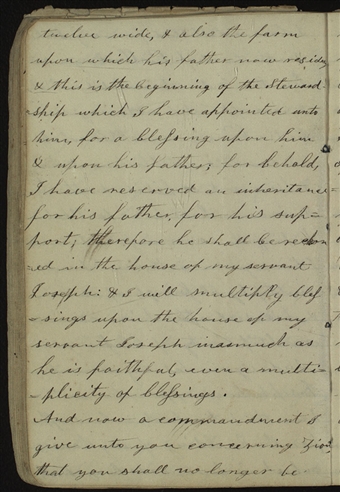 twelve wide, & also the farm
upon which his father now resides
& this is the beginning of the steward-
-ship which I have appointed unto
him, for a blessing upon him
& upon his father; for behold,
I have reserved an inheritance
for his father, for his sup=
port; therefore he shall be reckon
=ed in the house of my servant
Joseph: & I will multiply bles
-sings upon the house of my
servant Joseph inasmuch as
he is faithful, even a multi=
-plicity of blessings.
And now a commandment I
give unto you concerning Zion,
that you shall no longer be